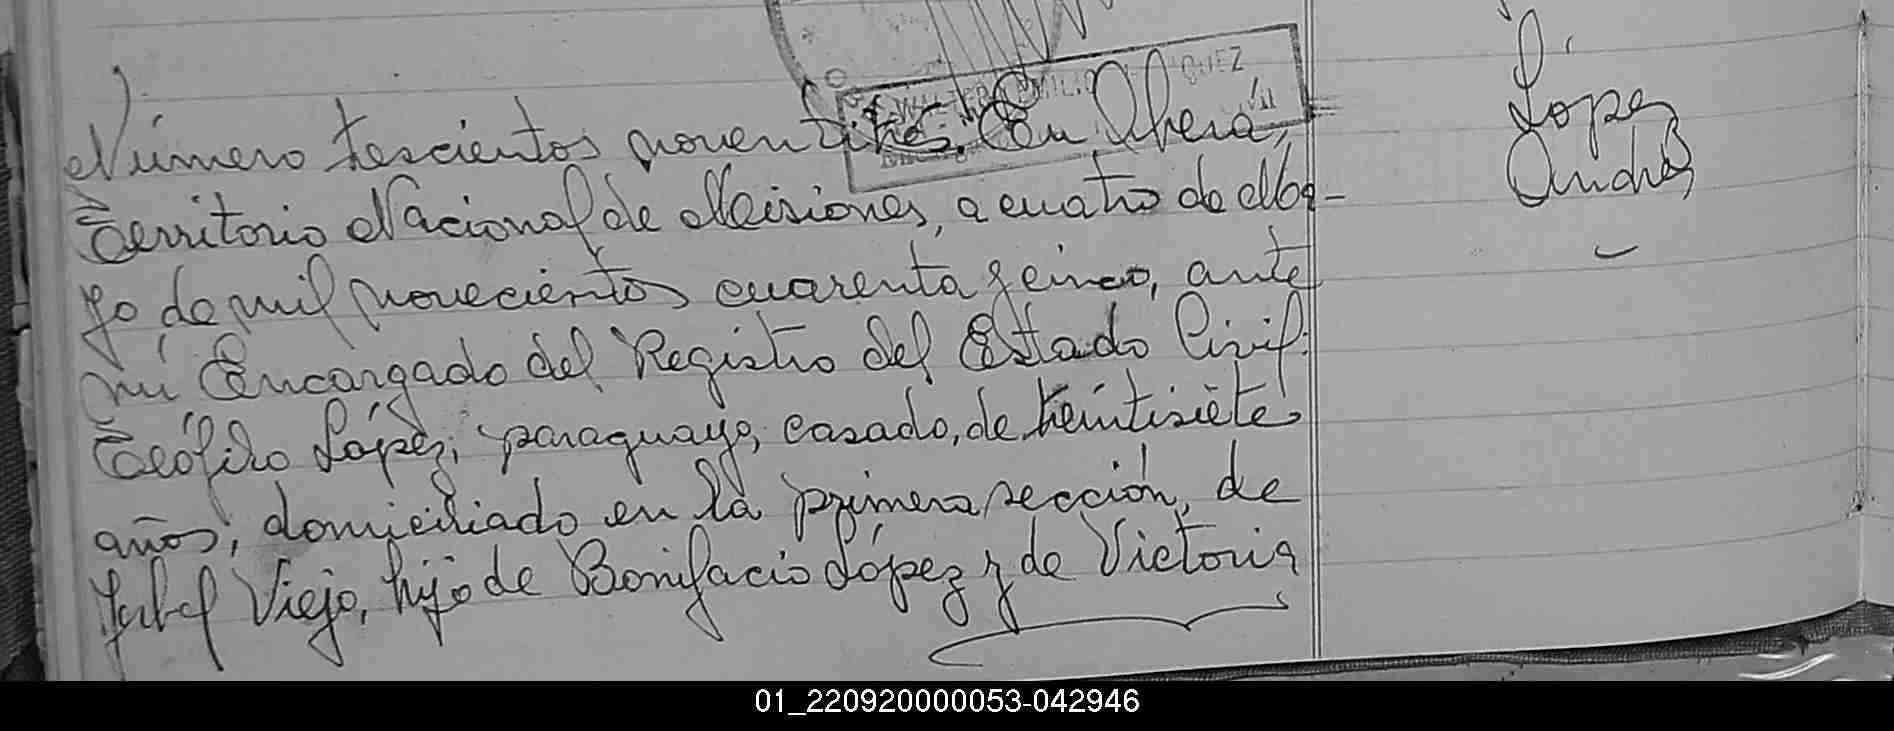 Número trescientos noventitrés. En Oberá,
Territorio Nacional de Misiones, a cuatro de Ma-
yo de mil novecientos cuarenta y cinco, ante
mí Encargado del Registro del Estado Civil:
Teófilo López, paraguayo, casado, de treintisiete
años, domiciliado en la primera sección, de
Viejo, hijo de Bonifacio López y de Victoria
López
Andrés
WALTER MILIO QUEZ
01_220920000053-042946